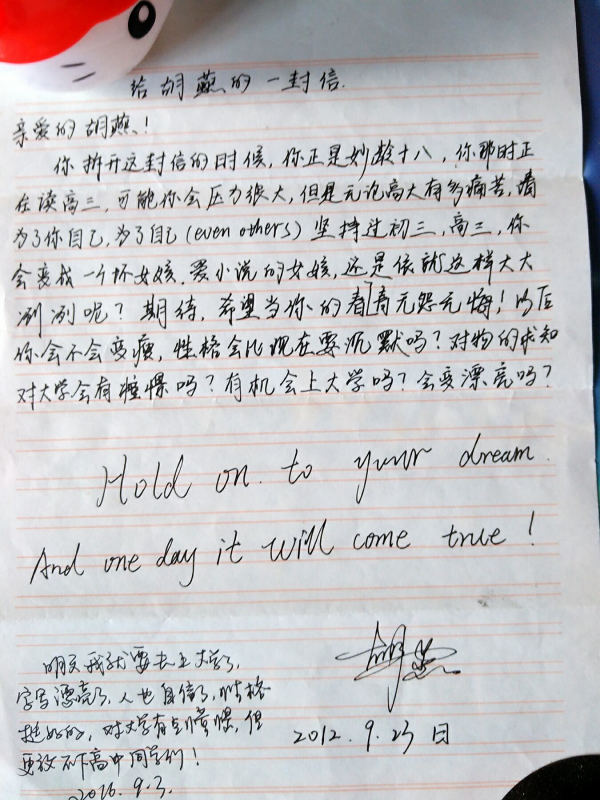 给胡燕的一封信.
亲爱的胡燕!
你拆开这封信的时候,你正是妙数十八,你那时正
在读高三,可能你会压力很大,但是无论高大有多痛苦,请
为了你自己,为了自己(even others)坚持过初三,高三,你
会变成一个坏女孩.爱小说的女孩,还是依就这样大大
咧咧呢?期待,希望当你的青春无怨无悔!
你会不会变瘦,性格会比现在要沉默吗?对物的求知
对大学会有憧憬吗?有机会上大学吗?会变漂亮吗?
Hold on to your dream.
And one day it will come true!
胡燕
2012.9.23日
明天我就要去上大学了,
字写漂亮了,人也自信了,性格
挺好的,对大学有点憧憬,但
更放不下高中同学们!
2016.9.3.